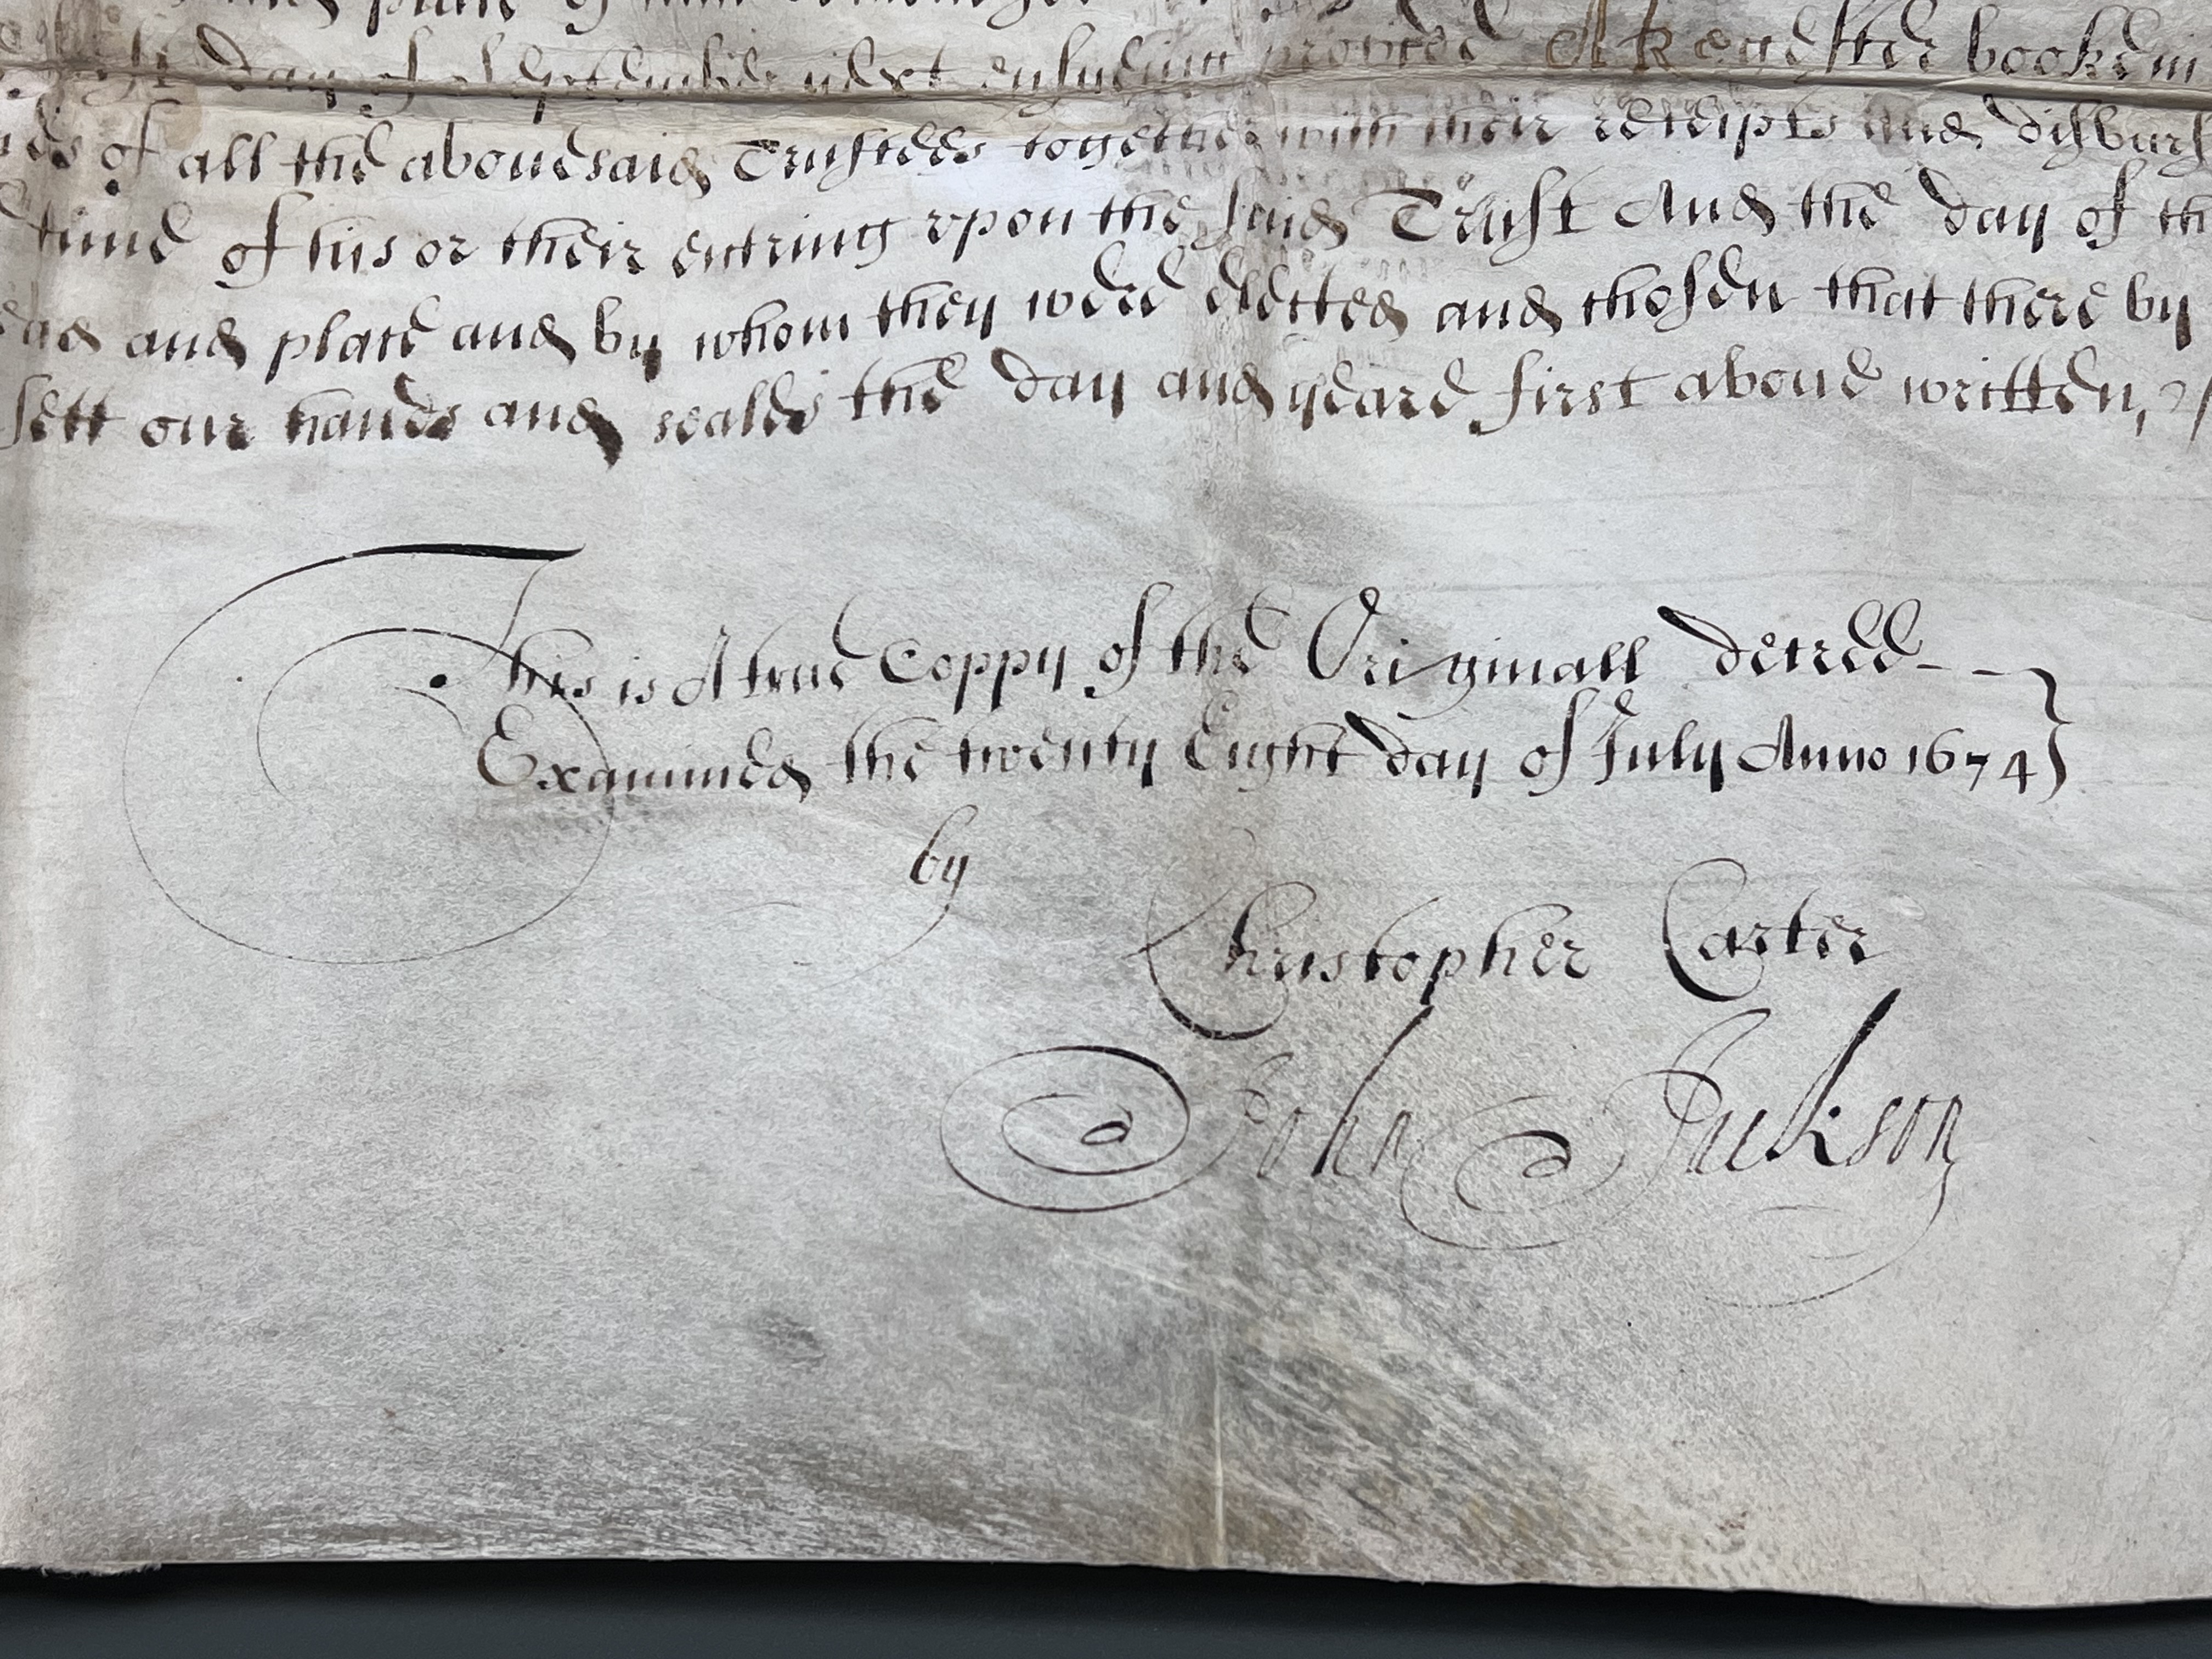 day of September next ensueing provided A Regester booke in
of all the abouesaid Trustees together with their receipts and disburs
time of his or their entring vpon the said Trust And the day of th
and place and by whom they were elected and chosen that there by
sett our hands and seales the day and yeare first aboue written,
This is A true Coppy of the Originall decree
Examined the twenty Eight day of July Anno 1674
by
Christopher Carter
John Jackson